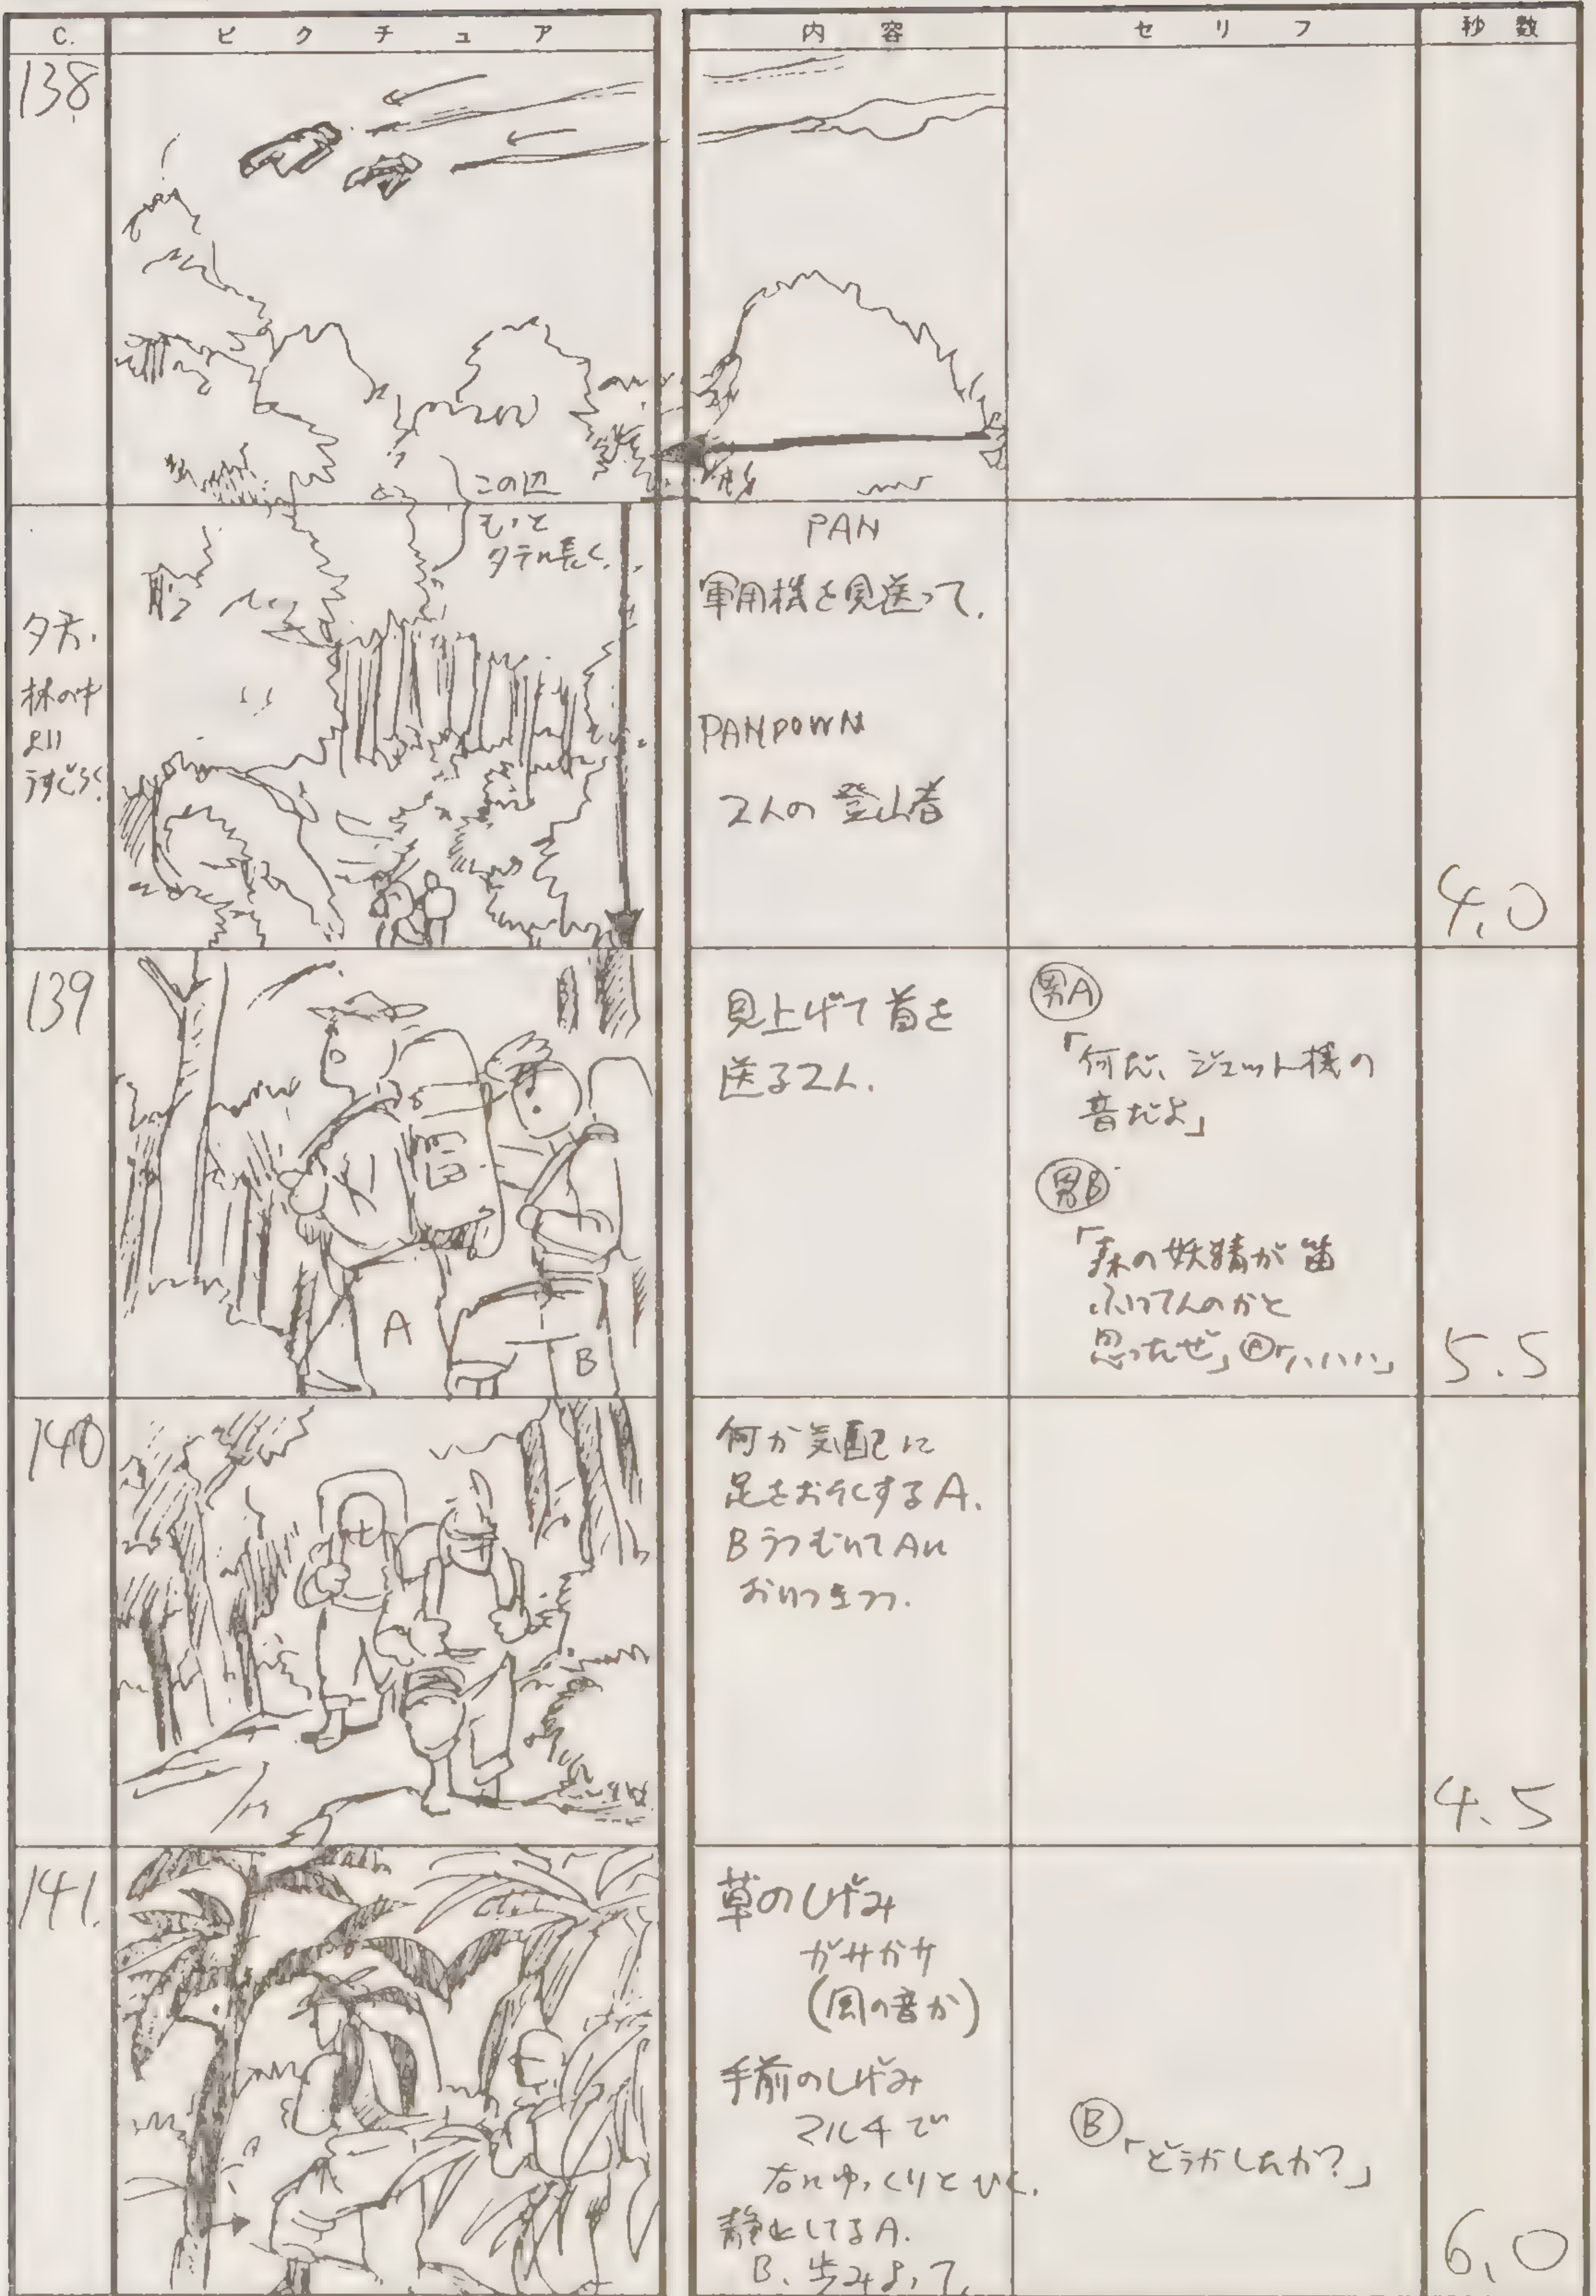 C.
ピクチュア
内容
セリフ
秒数
138
この辺
もっと
タテに長く..
夕方.
林の中
うすぐらく.
PAN
軍用機を見送って.
PAN DOWN
2人の登山者
4.0
139
A
B
見上げて首を
送る2人.
男A
「何だ、ジェット機の
音だよ」
男B
「森の妖精が笛
ふいてんのかと
思ったぜ」Ⓐ「ハハハ」
5.5
140
何か気配に
足をおそくするA.
BうつむいてAに
おいつきつつ.
4.5
141.
草のしげみ
ガサガサ
(風の音か)
手前のしげみ
マルチで
右にゆっくりとひく.
静止してるA.
B、歩みよって.
Ⓑ「どうかしたか?」
6.0